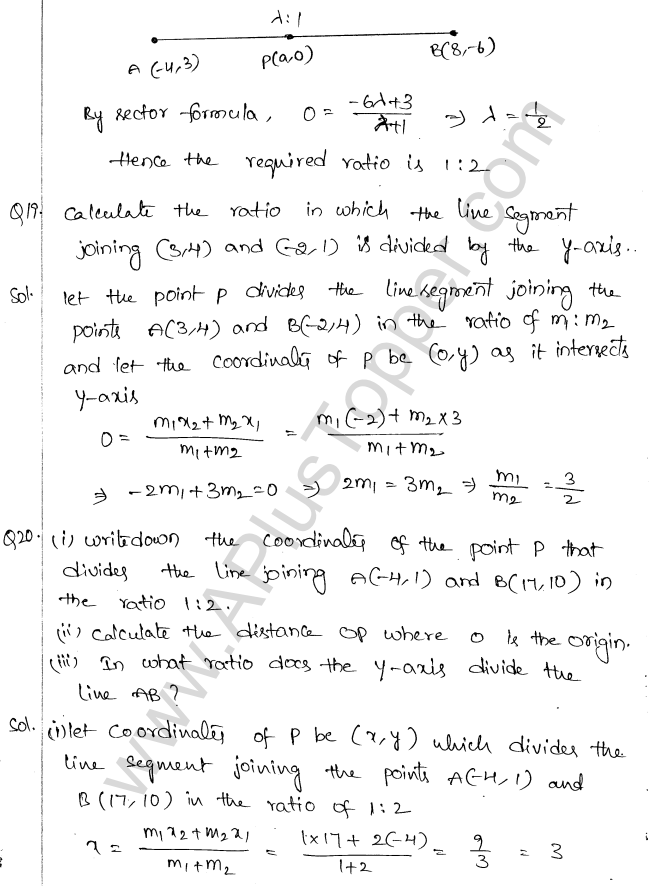 λ : 1
A (-4,3) P(a,0) B(8,-6)
By sector formula, 0 = (-6λ+3)/(λ+1) ⇒ λ = 1/2
Hence the required ratio is 1:2
Q19. Calculate the ratio in which the line segment
joining (3,4) and (-2,1) is divided by the y-axis..
Sol. let the point P divides the line segment joining the
points A(3,4) and B(-2,4) in the ratio of m1:m2
and let the coordinates of P be (0,y) as it intersects
y-axis
0 = (m1x2+m2x1)/(m1+m2) = (m1(-2)+m2×3)/(m1+m2)
⇒ -2m1+3m2=0 ⇒ 2m1=3m2 ⇒ m1/m2 = 3/2
Q20. (i) write down the coordinates of the point P that
divides the line joining A(-4,1) and B(17,10) in
the ratio 1:2.
(ii) Calculate the distance OP where O is the origin.
(iii) In what ratio does the y-axis divide the
line AB?
Sol. (i) let coordinates of P be (x,y) which divides the
line segment joining the points A(-4,1) and
B(17,10) in the ratio of 1:2
x = (m1x2+m2x1)/(m1+m2) = (1×17+2(-4))/(1+2) = 9/3 = 3
www.APlusTopper.com